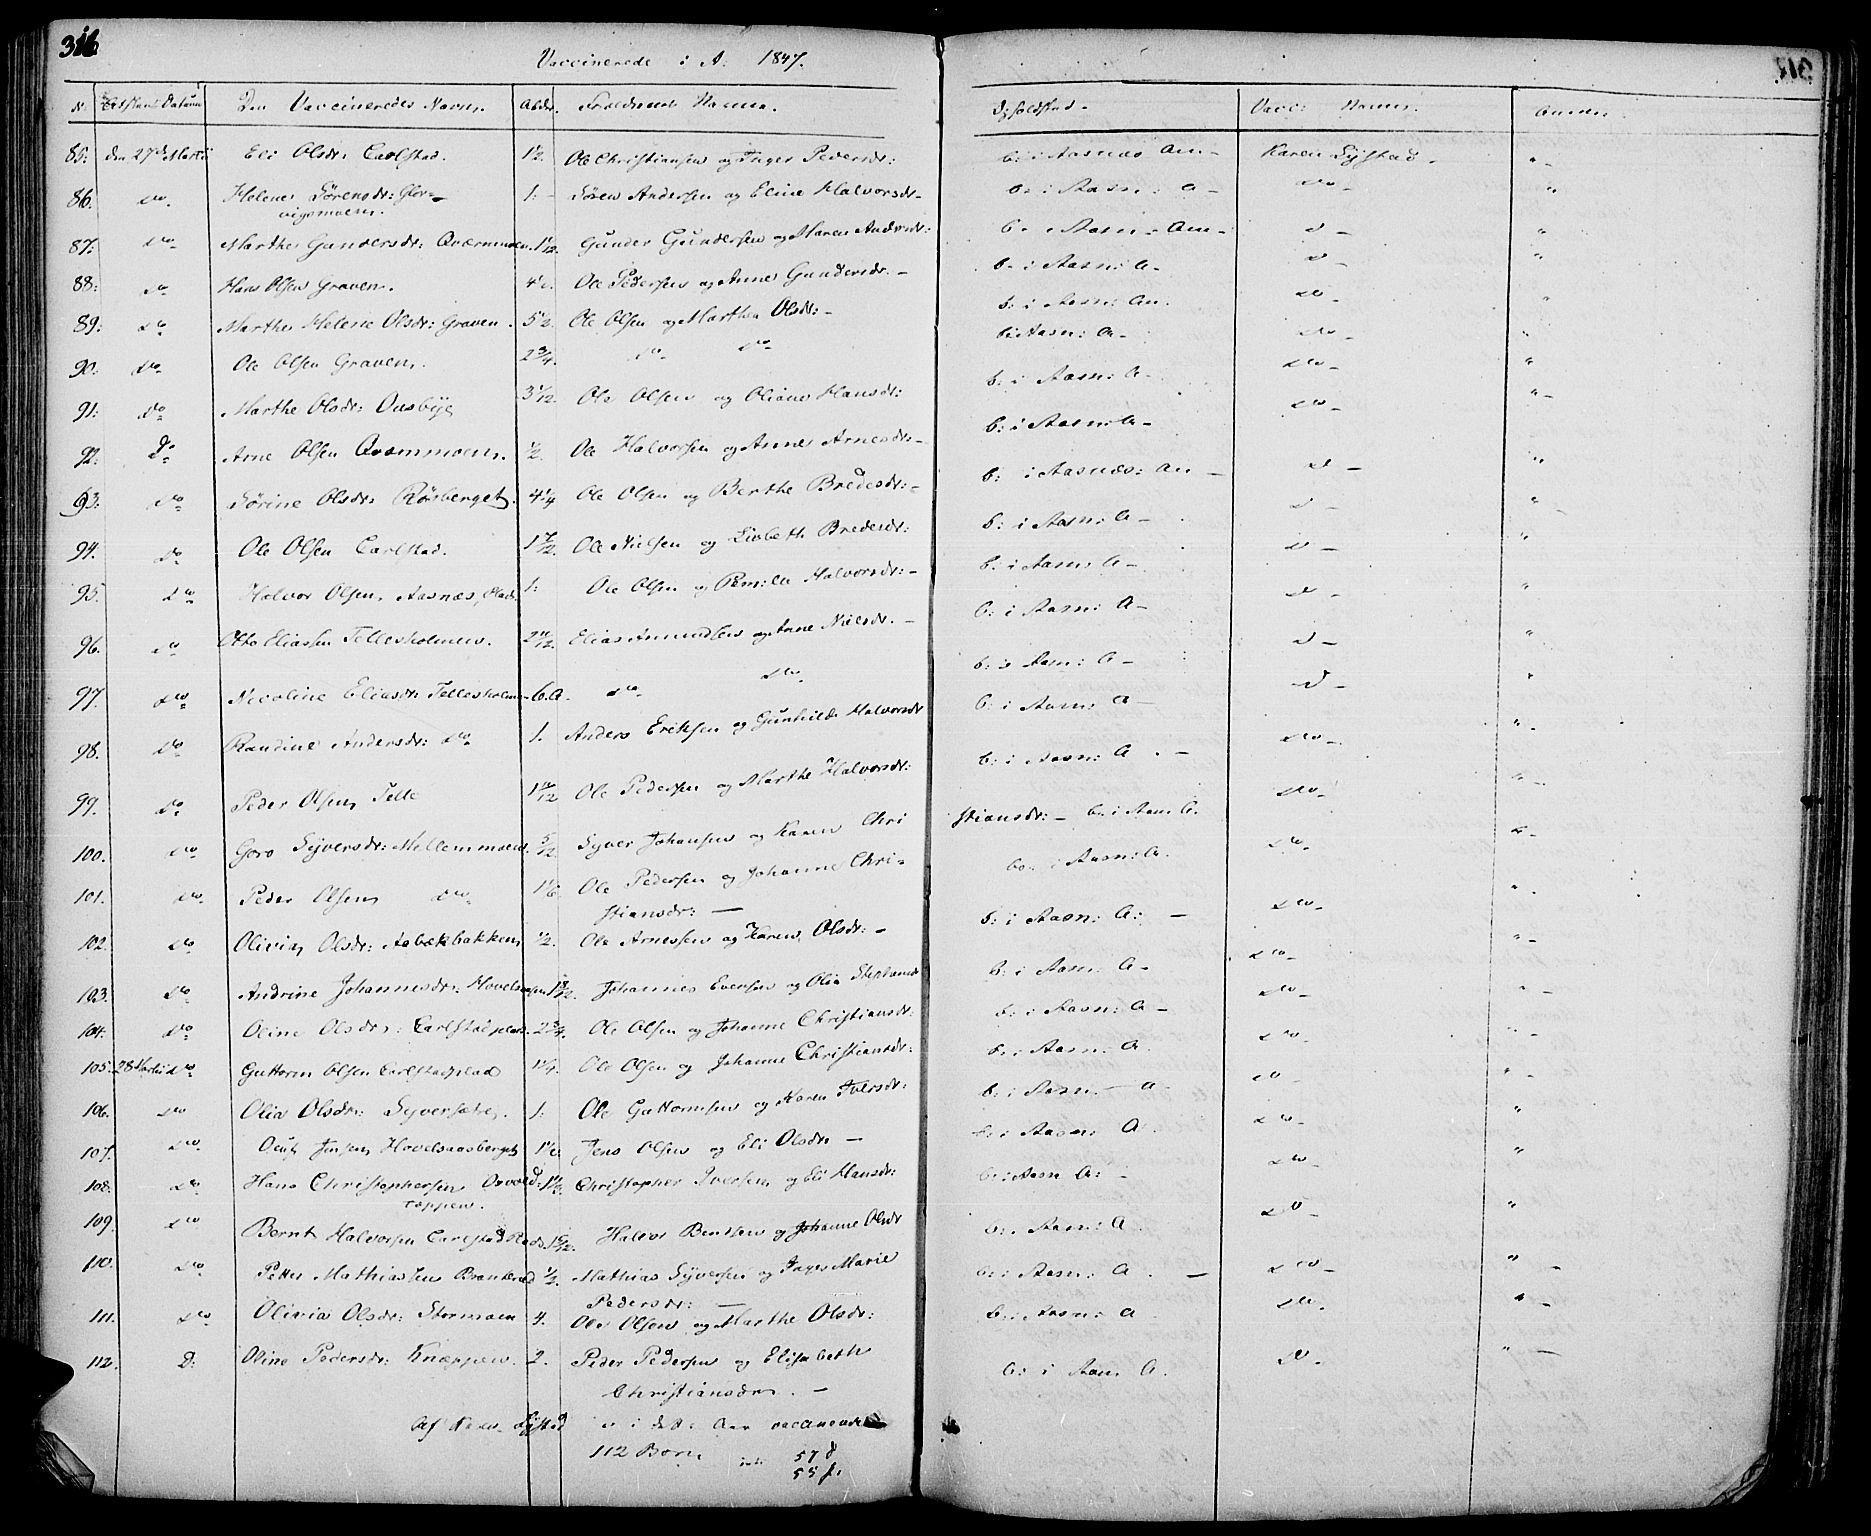 316
317.
Vaccinerede i A. 1847.
N. Datum Den Vaccineredes Navn. Alder. Forældrenes Navne. Opholdsted. Vacc: Navne.
85: den 27de Martii Eli Olsdr: Carlstad. 1½. Ole Christiansen og Inger Pedersdr: b: i Aasnæs An- Karen Lystad. "-
86. do. Helene Sörensdr: Glor- 1:- Sören Andersen og Eline Halvorsdr- b: i Aasn: A- do- "
vigsmoen.
87: do. Marthe Gundersdr: Qværnmoen. 1 1/12. Gunder Gundersen og Maren Andrsdr: b. i Aasn: An- d- "
88: do Hans Olsen Graven. Ole Pedersen og Anne Gundersdr.- b. i Aasn: A- d- "
89: do Marthe Helene Olsdr: Graven. 5½. Ole Olsen og Marthea Olsdr:- b: i Aasn: An. do- "
90. do. Ole Olsen Graven. 2¾. do- do- b: i Aasn: A- do- "
91. do Marthe Olsdr: 3 1/12. Ole Olsen og Oliane Hansdr: b: i Aasn: A- do- "
92. do Arne Olsen Qvæmmoen. ½. Ole Halvorsen og Anne Arnesdr:- b: i Aasn: A- do- "-
93: do Sörine Olsdr: Rösberget. 4¼ Ole Olsen og Berthe Bredesdr:- b: i Aasnæs: An- d- "
94. do Ole Olsen Carlstad. 1 7/12. Ole Nielsen og Lisbeth Bredesdr: b: i Aasn: A- d- "
95. do Halvor Olsen, Aasnæs, 1: Ole Olsen og Pernille Halvorsdr:- b: i Aasn: A- d- "
96. do Otto Eliassen Tellesholmen. 2 11/12. Elias Amundsen og Anne Nielsdr.- b: i Aasn: A- d- "
97. do Nicoline Eliasdr: Tellesholmen 6.A. do- do- b: i Aasn: A- d- "
98. do Randine Andersdr: do- 1. Anders Eriksen og Gunhilde Halvorsdr b: i Aasn: A- do- "-
99. do Peder Olsen Telle Ole Pedersen og Marthe Halvorsdr: b: i Aasn: A.- do- "-
100. do- Goro Syversdr: Mellemmoen. 5/12. Syver Johansen og Karen Chri stiansdr:- b: i Aasn A. do- "-
101. do- Peder Olsen do- 1 1/6. Ole Pedersen og Johanne Chri- bo- i Aasn: A. do- "-
stiansdr:-
102. do- Olivia Olsdr: Aabækbakken ½. Ole Arnesen og Karen Olsdr:- b: i Aasn: A:- do- "-
103. do- Andrine Johannesdr: Johannes Evensen og Olia b: i Aasn: A- do- "-
104. do- Oline Olsdr: Carlstadplad. 2¾. Ole Olsen og Johanne Christiansdr: b: i Aasn: A- do- "-
105. 28 Martii do- Guttorm Olsen Carlstadplad 1¼. Ole Olsen og Johanne Christiansdr: b: i Aasn: A. do- "-
106. do- Olia Olsdr: Syversætre. 1: Ole Guttormsen og Karen Iversdr: b: i Aasn- A- do- "-
107. do- Jensen Hovelsaasberget Jens Olsen og Eli Olsdr- b: i Aasn: A. do- "
108. do Hans Christophersen Christopher Iversen og Eli Hansdr: b: i Aasn A:- do- "
109. do Bernt Halvorsen Carlstad Halvor Bentsen og Johanne Olsdr b: i Aasn: A. do- "
110. do- Petter Mathiassen Branderud ½. Mathias Syversen og Inger Marie b: i Aasn: A.- do- "-
Pedersdr:-
111. do- Olivia Olsdr: Stormoen 4. Ole Olsen og Marthe Olsdr: b: i Aasn: A do- "-
112. D: Oline Pedersdr: Knæppen. 2. Peder Pedersen og Elisabeth b: i Aasn A. do- "-
Christiansdr.-
Af Karen Lystad er i dette Aar vaccinerede
112 Börn 57 d
55 p.